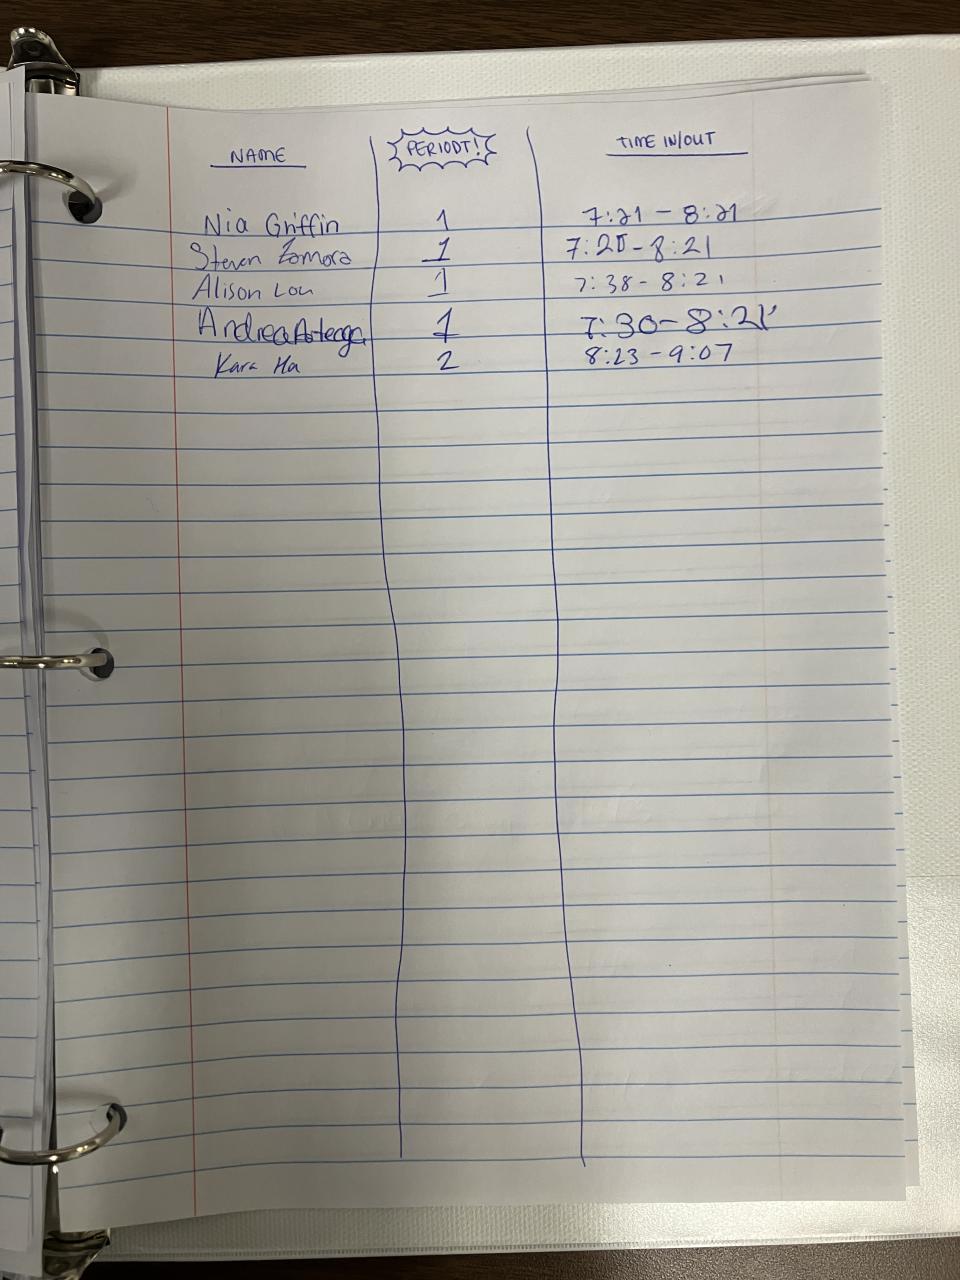 NAME PERIODT! TIME IN/OUT
Nia Griffin 1 7:21 - 8:21
Steven Zamora 1 7:20 - 8:21
Alison Lou 1 7:38 - 8:21
Andrea Arteaga 1 7:30 - 8:21
Kara Ha 2 8:23 - 9:07